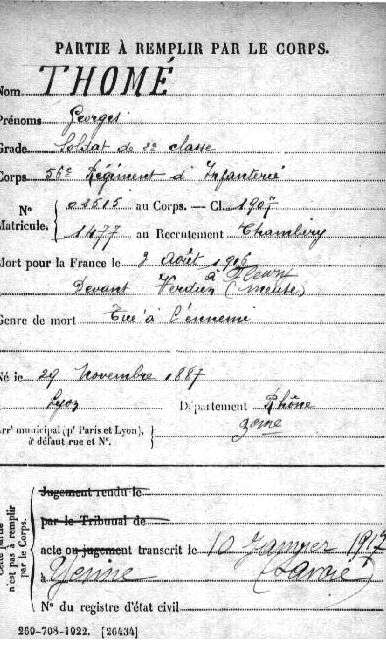 PARTIE À REMPLIR PAR LE CORPS.
Nom THOMÉ
Prénoms Georges
Grade Soldat de 2e classe
Corps 56e Régiment d'Infanterie
No Matricule. 02515 au Corps. — Cl. 1907
1477 au Recrutement Chambéry
Mort pour la France le 9 Août 1916
à Fleury
Devant Verdun (Meuse)
Genre de mort Tué à l'ennemi
Né le 29 Novembre 1887
Lyon Département Rhône
Arrt municipal (pr Paris et Lyon), à défaut rue et No.
Jugement rendu le
par le Tribunal de
acte ou jugement transcrit le 10 Janvier 1917
à Yenne (Savoie)
No du registre d'état civil
Cette partie n'est pas à remplir par le Corps.
269-708-1922. [26434]